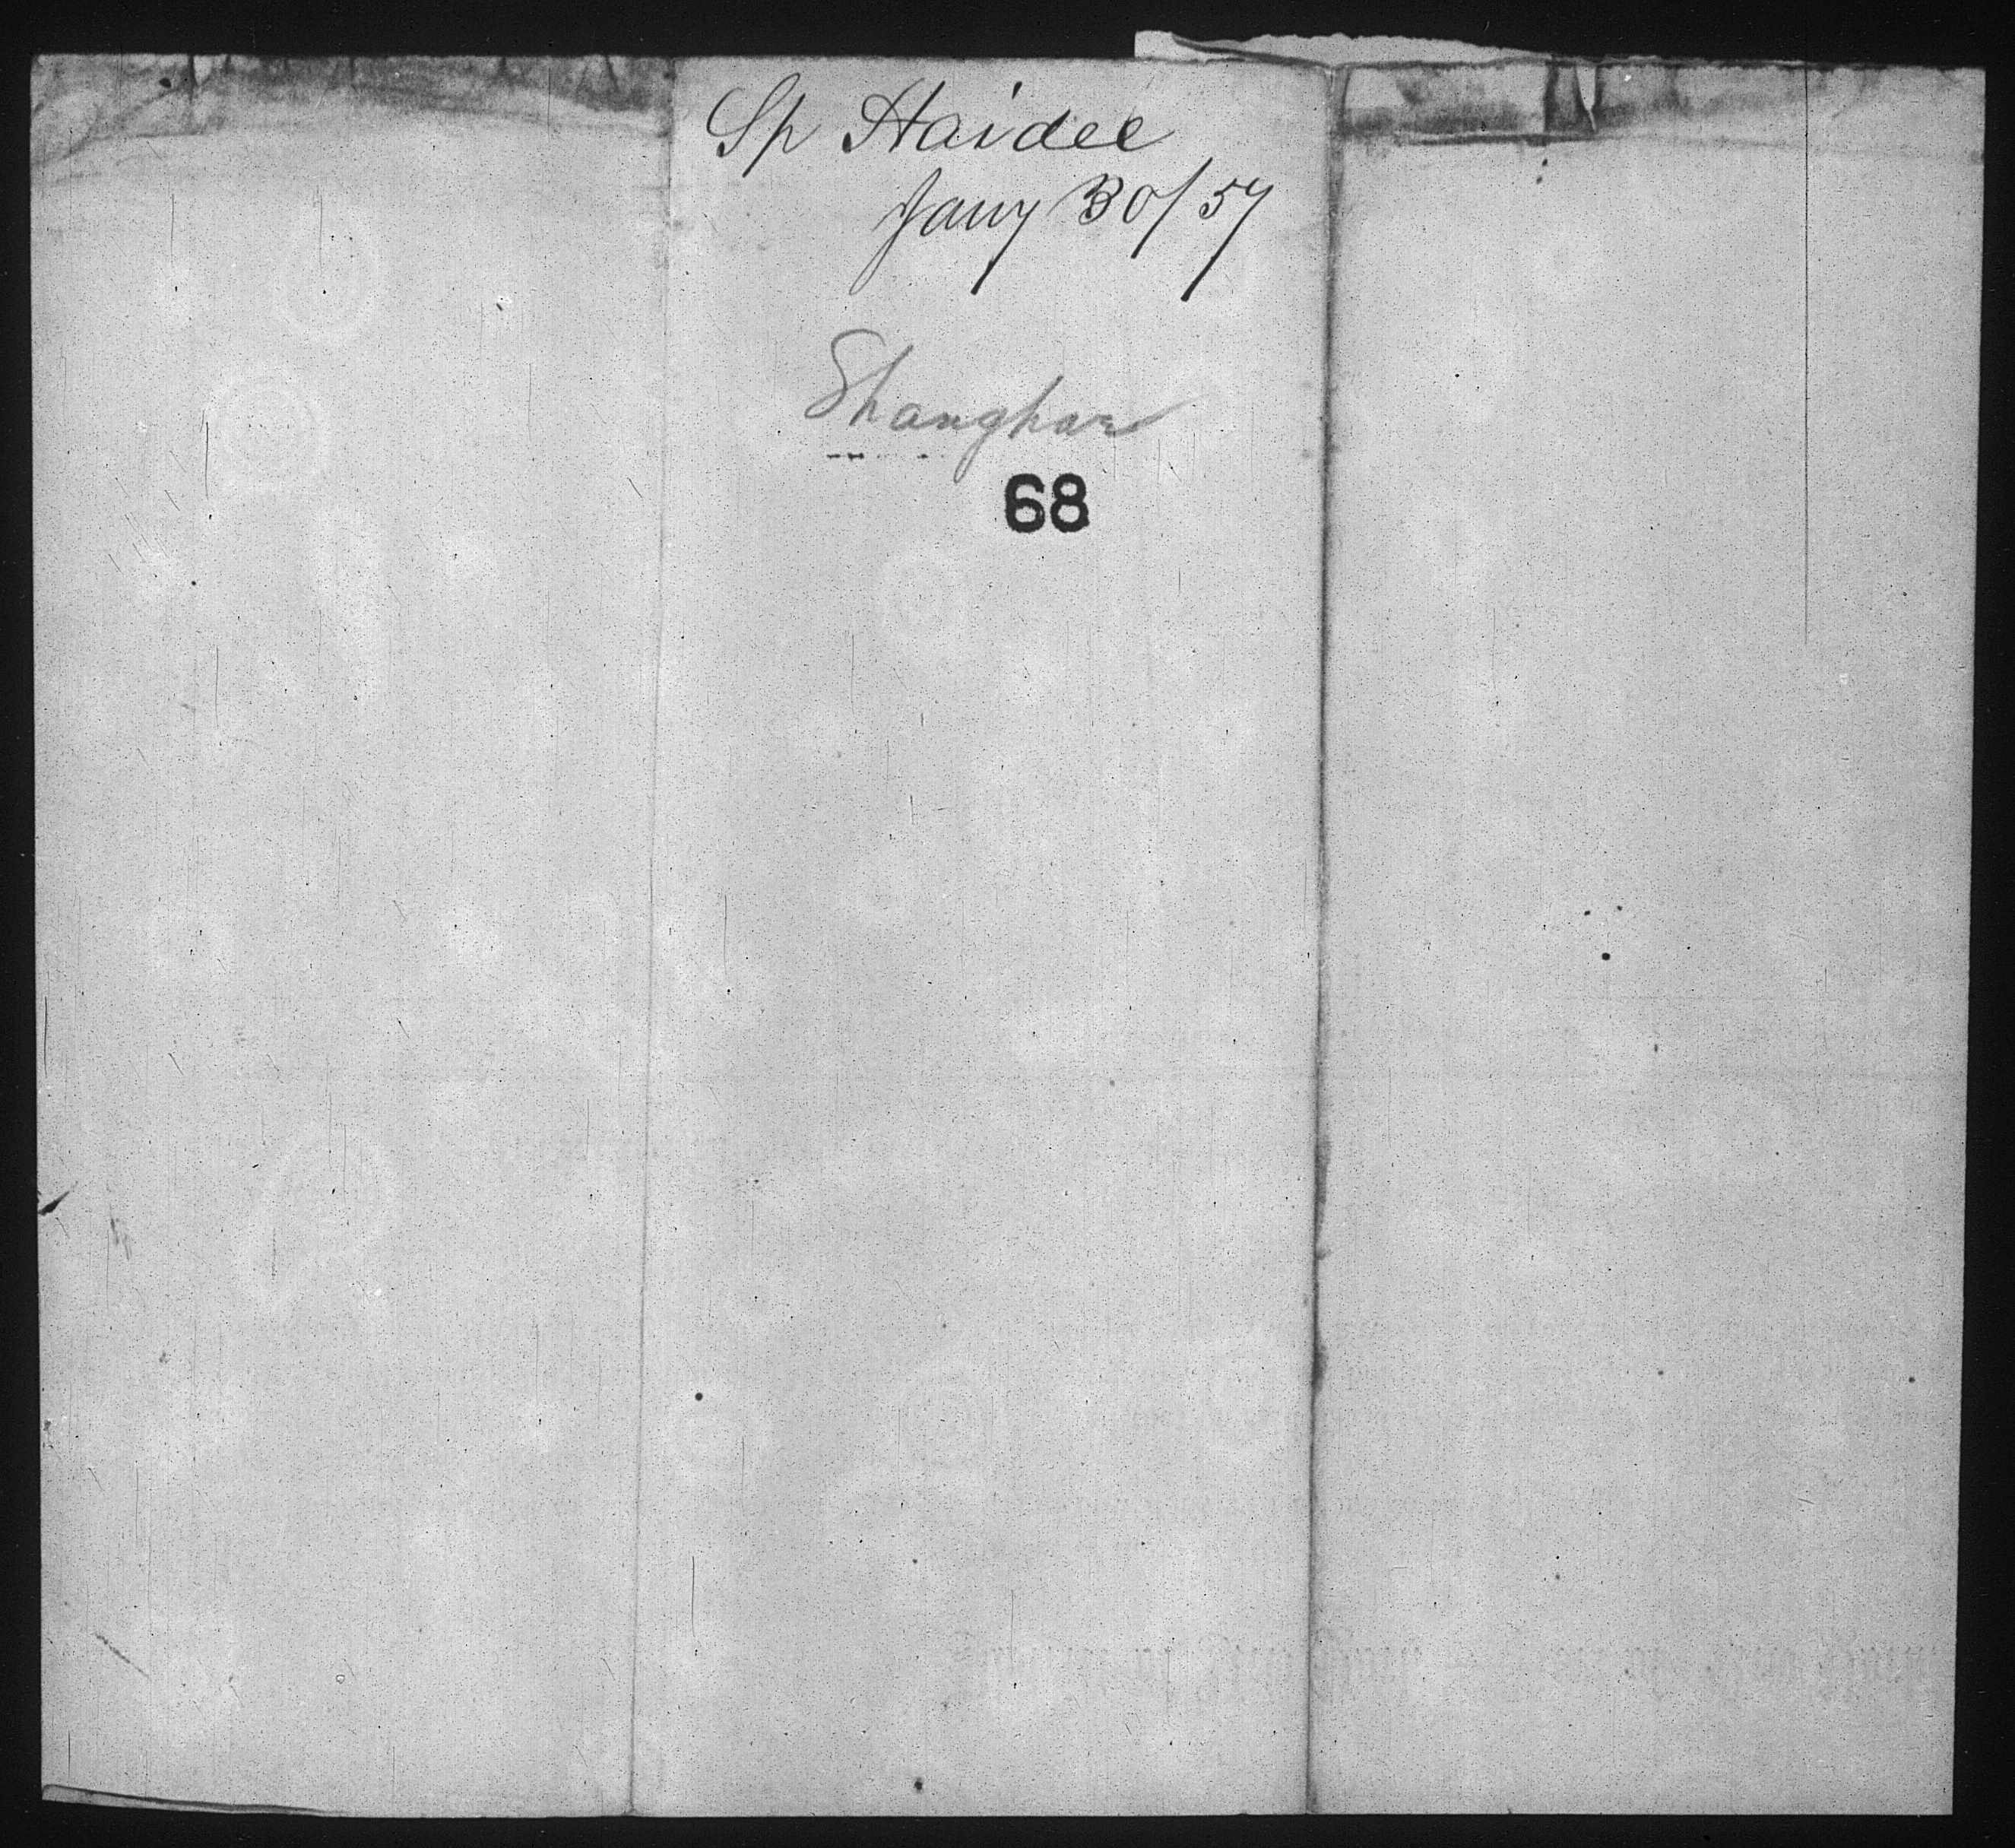 Sp Haidee
Jany 30/57
Shanghai
68